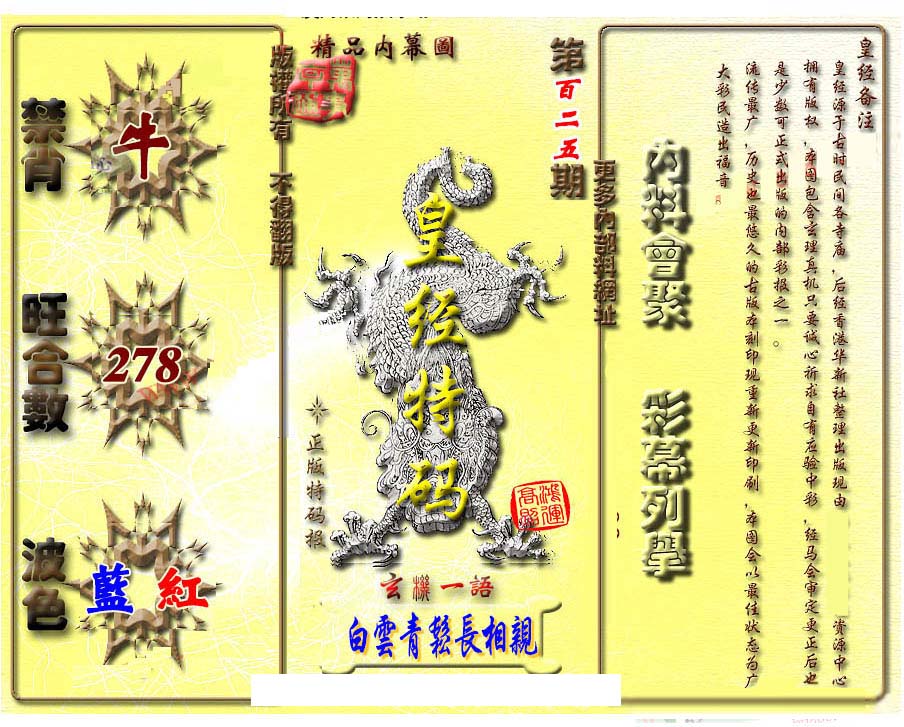 精品内幕圖
禁肖
牛
旺合數
278
波色
藍 紅
版權所有 不得翻版
皇经特码
正版特码报
鴻運高照
玄機一語
白雲青鬆長相親
第百二五期
更多內部料網址
內料會聚 彩幕列舉
皇经备注
皇经源于古时民间各寺庙,后经香港华新社整理出版现由 资源中心
拥有版权,本图包含玄理真机只要诚心祈求自有应验中彩,经马会审定更正后也
是少数可正式出版的内部彩报之一。
流传最广,历史也最悠久的古版本刻印现重新更新印刷,本图会以最佳状态为广
大彩民造出福音